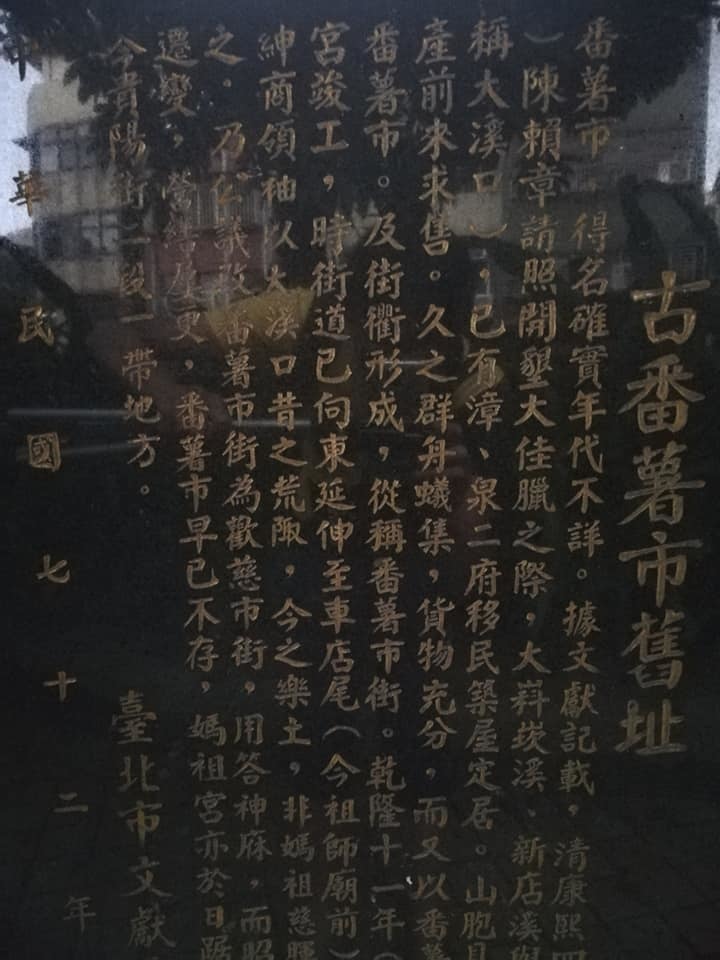 古番薯市舊址
番薯市，得名確實年代不詳。據文獻記載，清康熙四
）陳賴章請照開墾大佳臘之際，大嵙崁溪、新店溪與
稱大溪口），已有漳、泉二府移民築屋定居。山胞具
產前來求售。久之群舟蟻集，貨物充分，而又以番薯
番薯市。及街衢形成，從稱番薯市街。乾隆十一年（
宮竣工，時街道已向東延伸至車店尾（今祖師廟前）
紳商領袖以大溪口昔之荒陬，今之樂土，非媽祖慈暉
之．乃公議改番薯市街為歡慈市街，用答神庥，而昭
遷變，番薯市早已不存，媽祖宮亦於日踞
今貴陽街二段一帶地方。
臺北市文獻
中華民國七十二年